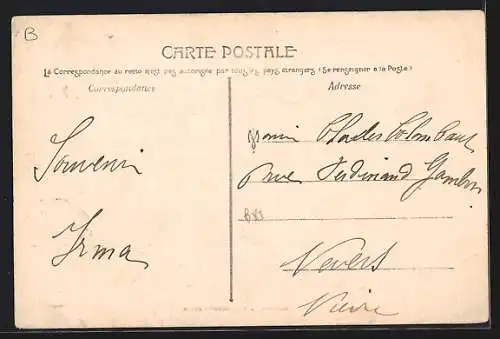 B
CARTE POSTALE
La Correspondance au recto n'est pas autorisée par tous les pays étrangers (Se renseigner à la Poste)
Correspondance
Adresse
Souvenir
Irma
Charles Colombant
Rue Ferdinand Gambon
Nevers